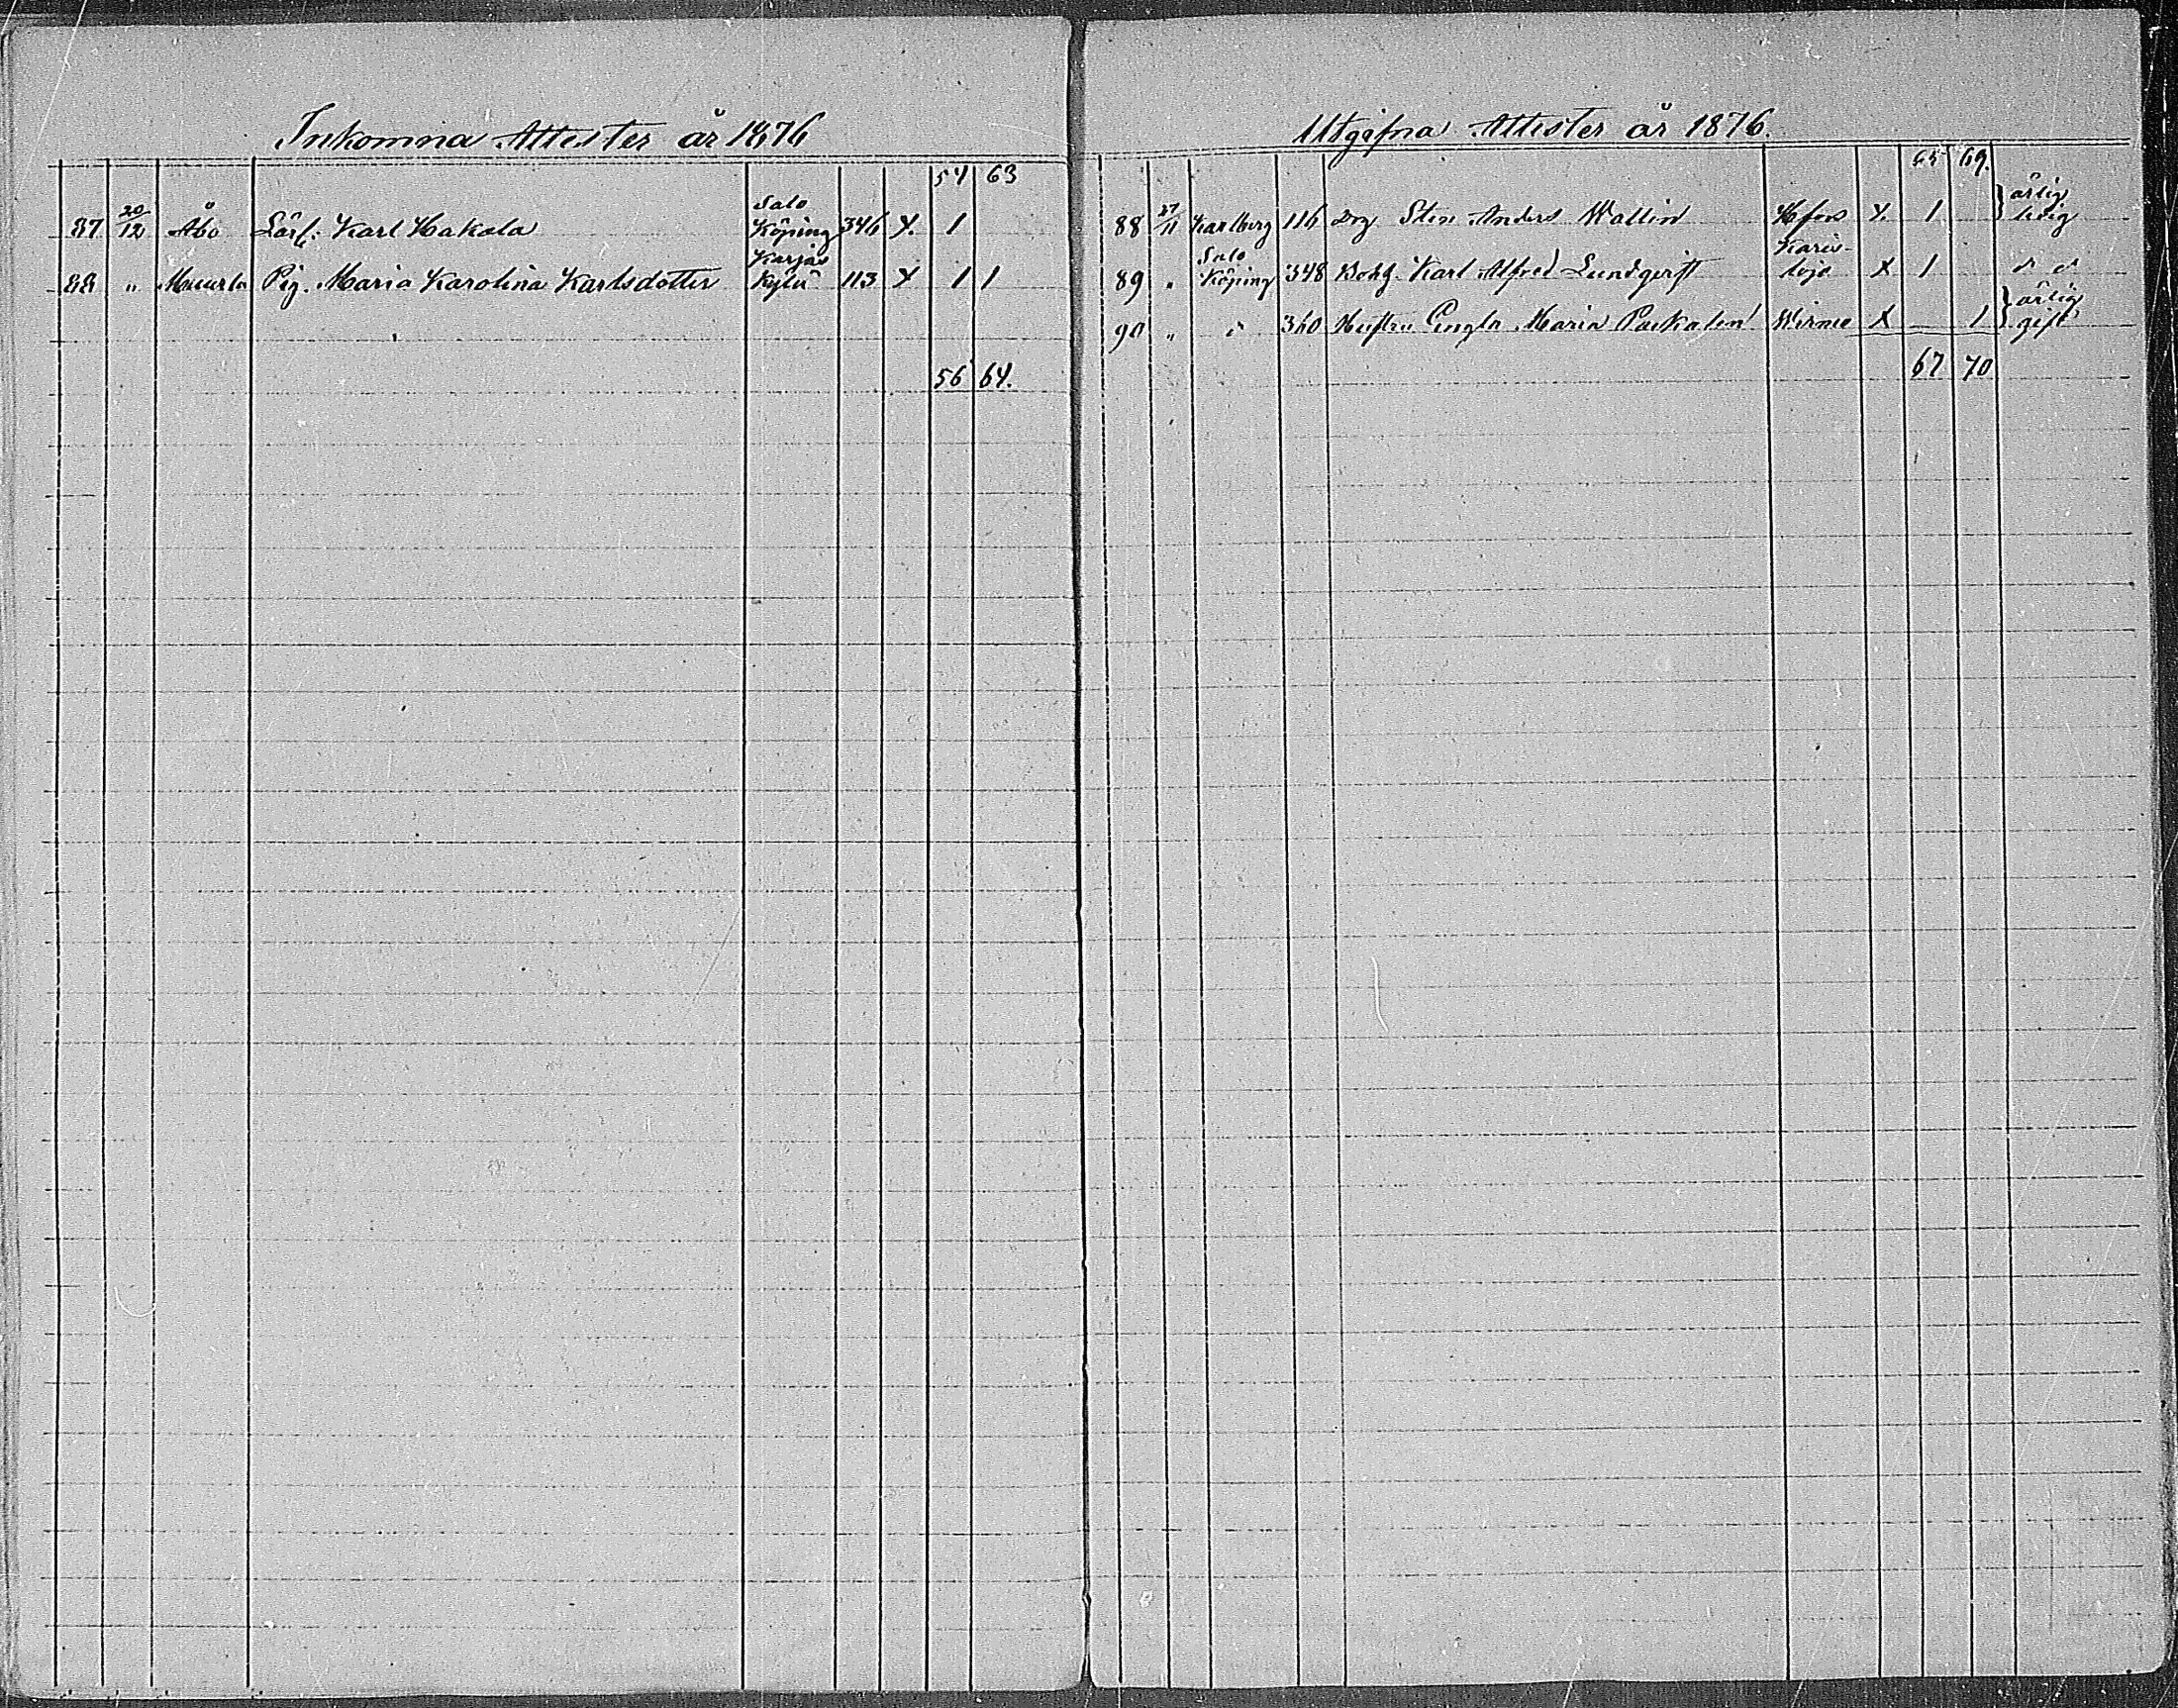 Inkomna Attester år 1876
54 63
Salo
87 20/12 Åbo Lärl. Karl Hakala Köping 346 X. 1
Karjas
88 " Muurla Pig. Maria Karolina Karlsdotter Kylä 113 X 1 1
56 64.
Utgifna Attester år 1876.
65 69.
ärlig
88 27/11 Karlberg 116 Drg Sten Anders Wallin Hfors X. 1 ledig
Salo Karis-
89 " Köping 348 Bokh. Karl Alfred Lundqvist lojo X 1 d d
ärlig
90 " d 360 Hustru Maria Wirmo X 1 gift
67 70